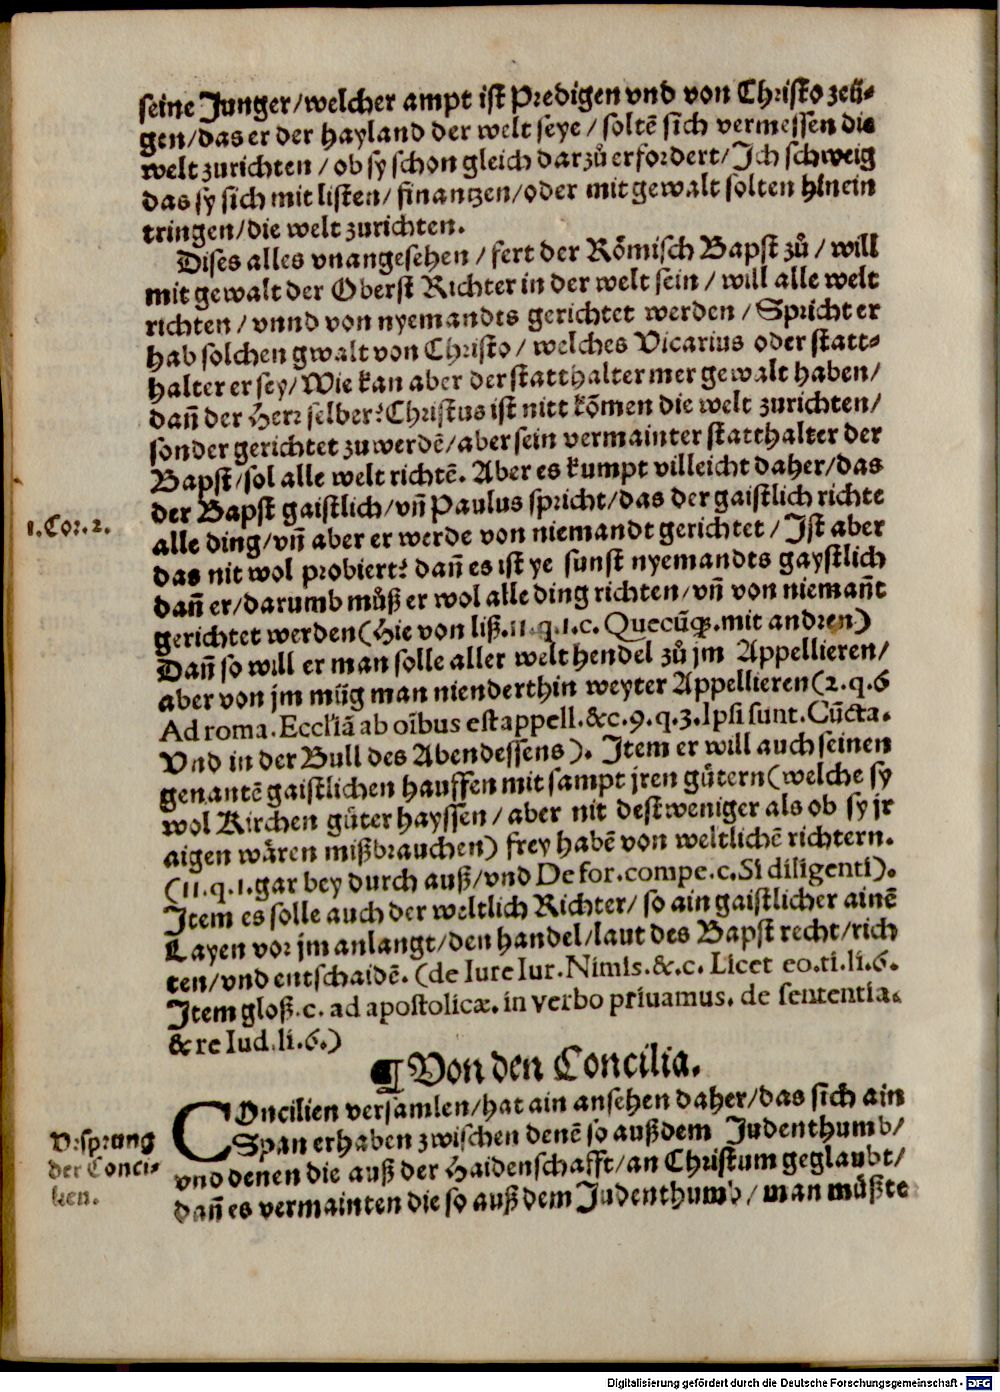 seine Junger/welcher ampt ist Predigen vnd von Christo zeü-
gen/das er der hayland der welt seye/soltẽ sich vermessen die
welt zurichten/ob sy schon gleich darzů erfordert/Jch schweig
das sy sich mit listen/finantzen/oder mit gewalt solten hinein
tringen/die welt zurichten.
Dises alles vnangesehen/fert der Rö̃misch Bapst zů/will
mit gewalt der Oberst Richter in der welt sein/will alle welt
richten/vnnd von nyemandts gerichtet werden/Spricht er
hab solchen gwalt von Christo/welches Vicarius oder statt-
halter er sey/Wie kan aber der statthalter mer gewalt haben/
dañ der Herr selber? Christus ist nitt kõmen die welt zurichten/
sonder gerichtet zu werdẽ/aber sein vermainter statthalter der
Bapst/sol alle welt richtẽ. Aber es kumpt villeicht daher/das
der Bapst gaistlich/vñ Paulus spricht/das der gaistlich richte
1.Cor.2.
alle ding/vñ aber er werde von niemandt gerichtet/Jst aber
das nit wol probiert? dañ es ist ye sunst nyemandts gaystlich
dañ er/darumb můß er wol alle ding richten/vñ von niemañt
gerichtet werden(Hie von liß.11.q.1.c. Quecũqꝫ.mit andren)
Dañ so will er man solle aller welt hendel zů jm Appellieren/
aber von jm müg man nienderthin weyter Appellieren(2.q.6
Ad roma. Eccl'iã ab oĩbus est appell.&c.9.q.3.Ipsi sunt.Cũcta.
Vnd in der Bull des Abendessens). Jtem er will auch seinen
genantẽ gaistlichen hauffen mit sampt jren gütern(welche sy
wol Kirchen güter hayssen/aber nit dest weniger als ob sy jr
aigen wären mißbrauchen) frey habẽ von weltlichẽ richtern.
(11.q.1.gar bey durch auß/vnd De for.compe.c.Si diligenti).
Jtem es solle auch der weltlich Richter/so ain gaistlicher ainẽ
Layen vor jm anlangt/den handel/laut des Bapst recht/rich
ten/vnd entschaidẽ. (de Iure Iur. Nimis.&.c. Licet eo.ti.li.6.
Jtem gloß.c. ad apostolicæ.in verbo priuamus. de sententia.
&re Iud.li.6.)
¶Von den Concilia.
COncilien versamlen/hat ain ansehen daher/das sich ain
Vrsprung
der Conci-
lien.
Span erhaben zwischen denẽ so auß dem Judenthumb/
vnd denen die auß der Haidenschafft/an Christum geglaubt/
dañ es vermainten die so auß dem Judenthumb/man müßte
Digitalisierung gefördert durch die Deutsche Forschungsgemeinschaft - DFG